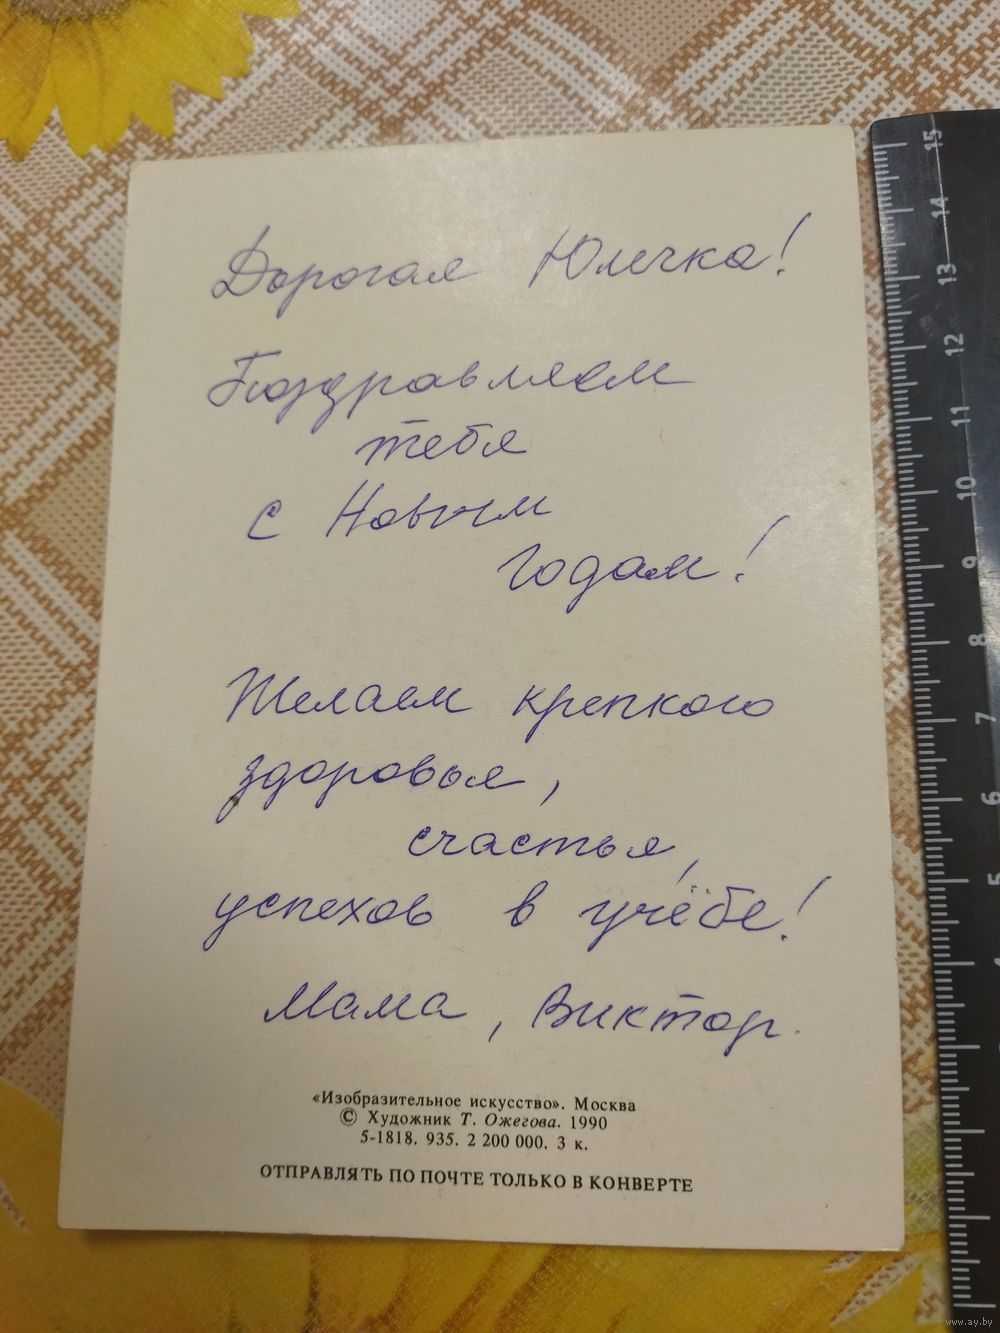 Дорогая Юлечка!
Поздравляем
тебя
с Новым
годом!
Желаем крепкого
здоровья,
счастья,
успехов в учёбе!
Мама, Виктор.
«Изобразительное искусство». Москва
© Художник Т. Ожегова. 1990
5-1818. 935. 2 200 000. 3 к.
ОТПРАВЛЯТЬ ПО ПОЧТЕ ТОЛЬКО В КОНВЕРТЕ
15
14
13
12
11
10
9
8
7
6
5
4
www.ay.by